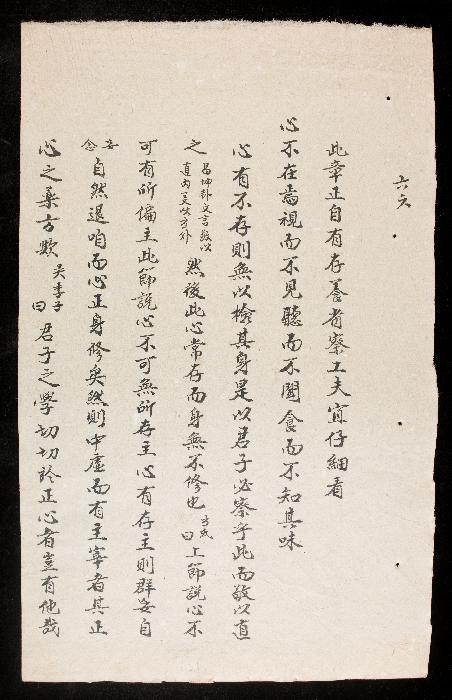 六六
此章正自有存養省察工夫宜仔細看
心不在焉視而不見聽而不聞食而不知其味
心有不存則無以檢其身是以君子必察乎此而敬以直
之易坤卦文言敬以直內義以方外然後此心常存而身無不修也方氏曰上節說心不
可有所偏主此節說心不可無所存主心有存主則群妄自
妄念自然退听而心正身修矣然則中虛而有主宰者其正
心之藥方歟吳季子曰君子之學切切於正心者豈有他哉